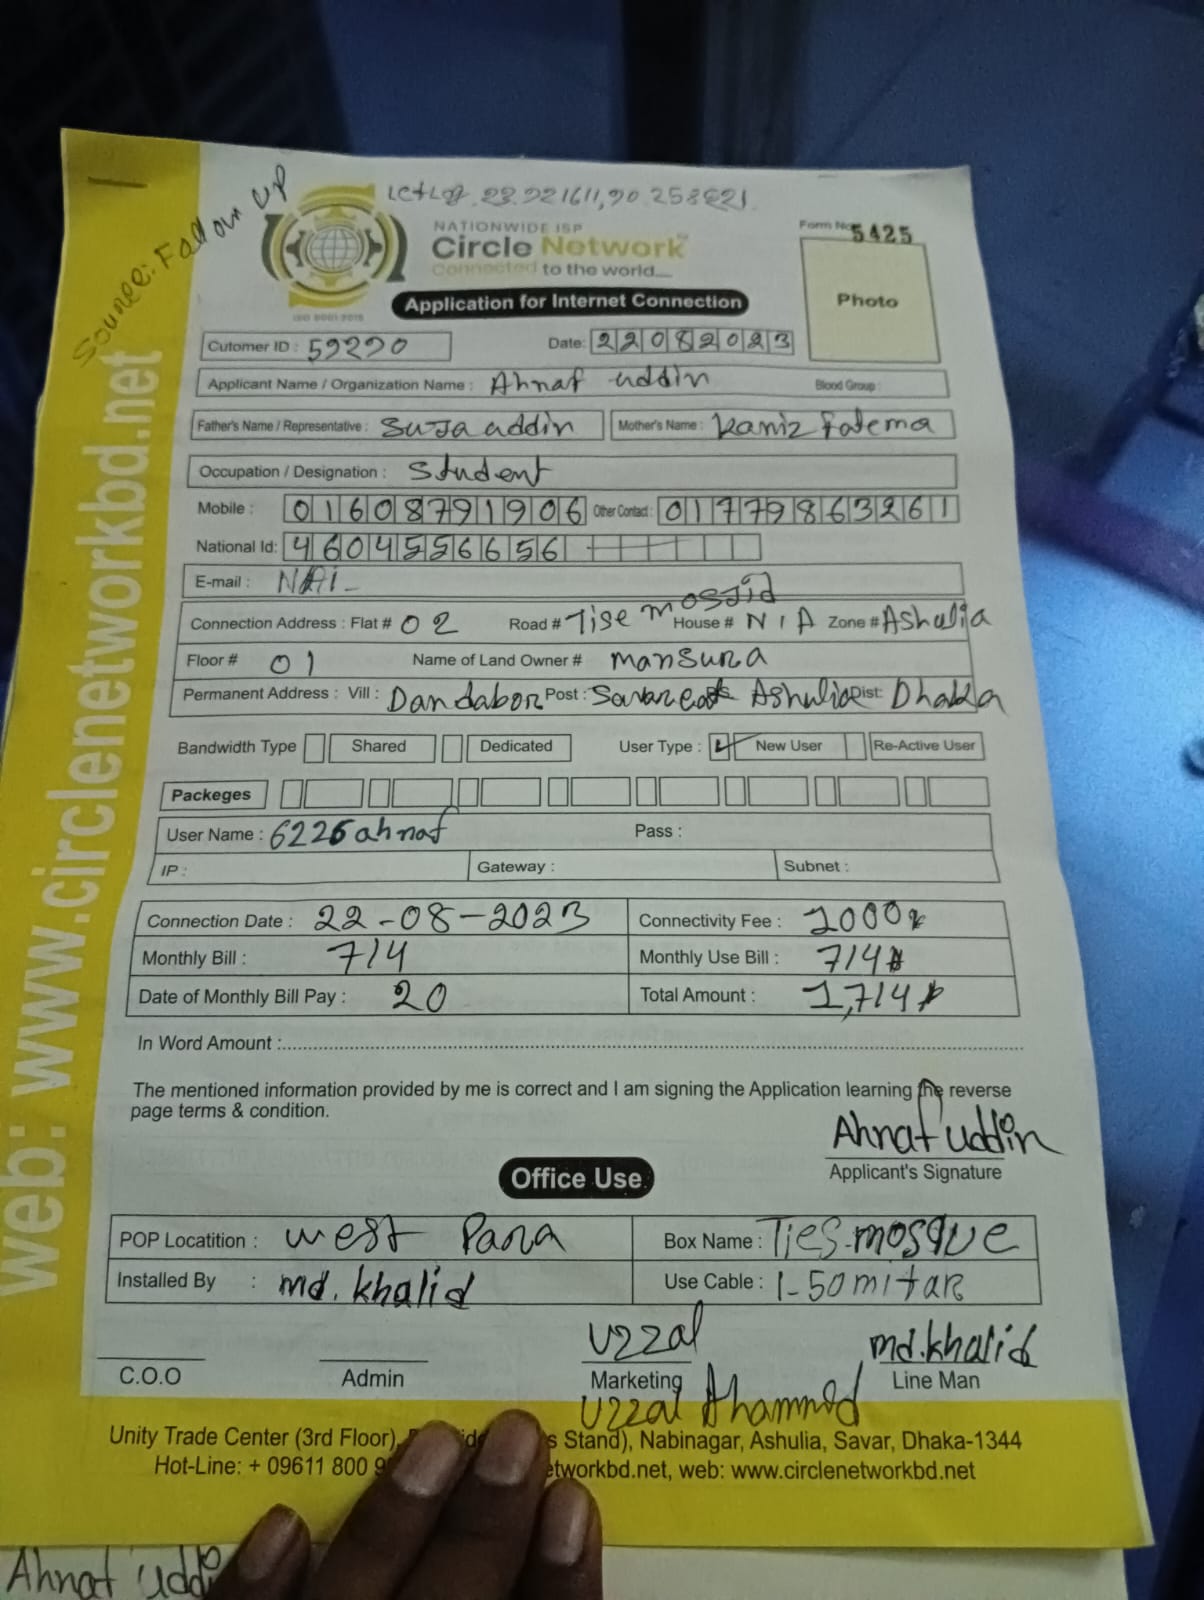 Source: Follow UP
NATIONWIDE ISP
Circle Network
Connected to the world....
ISO 9001:2015
Form No 5425
Photo
Application for Internet Connection
Cutomer ID : 59220 Date: 22082023
Applicant Name / Organization Name : Ahnaf uddin Blood Group :
Father's Name / Representative : Suja uddin Mother's Name : Kaniz fatema
Occupation / Designation : Student
Mobile : 01608791906 Other Contact : 01779863261
National Id: 4604556656
E-mail :
Connection Address : Flat # 02 Road # Tise mosjid House # N/A Zone # Ashulia
Floor # 01 Name of Land Owner # mansura
Permanent Address : Vill : Dandabor Post : Ashulia Dist: Dhaka
Bandwidth Type Shared Dedicated User Type : New User Re-Active User
Packeges
User Name : 6226ahnaf Pass :
IP : Gateway : Subnet :
Connection Date : 22-08-2023 Connectivity Fee : 1000
Monthly Bill : 714 Monthly Use Bill : 714
Date of Monthly Bill Pay : 20 Total Amount : 1,714
In Word Amount :
The mentioned information provided by me is correct and I am signing the Application learning the reverse
page terms & condition.
Ahnaf uddin
Applicant's Signature
Office Use
POP Locatition : west Para Box Name : Ties-mosque
Installed By : md. khalid Use Cable : 1-50mitar
Uzzal md.khalid
C.O.O Admin Marketing Line Man
Uzzal Ahammed
Unity Trade Center (3rd Floor), s Stand), Nabinagar, Ashulia, Savar, Dhaka-1344
Hot-Line: + 09611 800 9 etworkbd.net, web: www.circlenetworkbd.net
web: www.circlenetworkbd.net
Ahnaf uddi